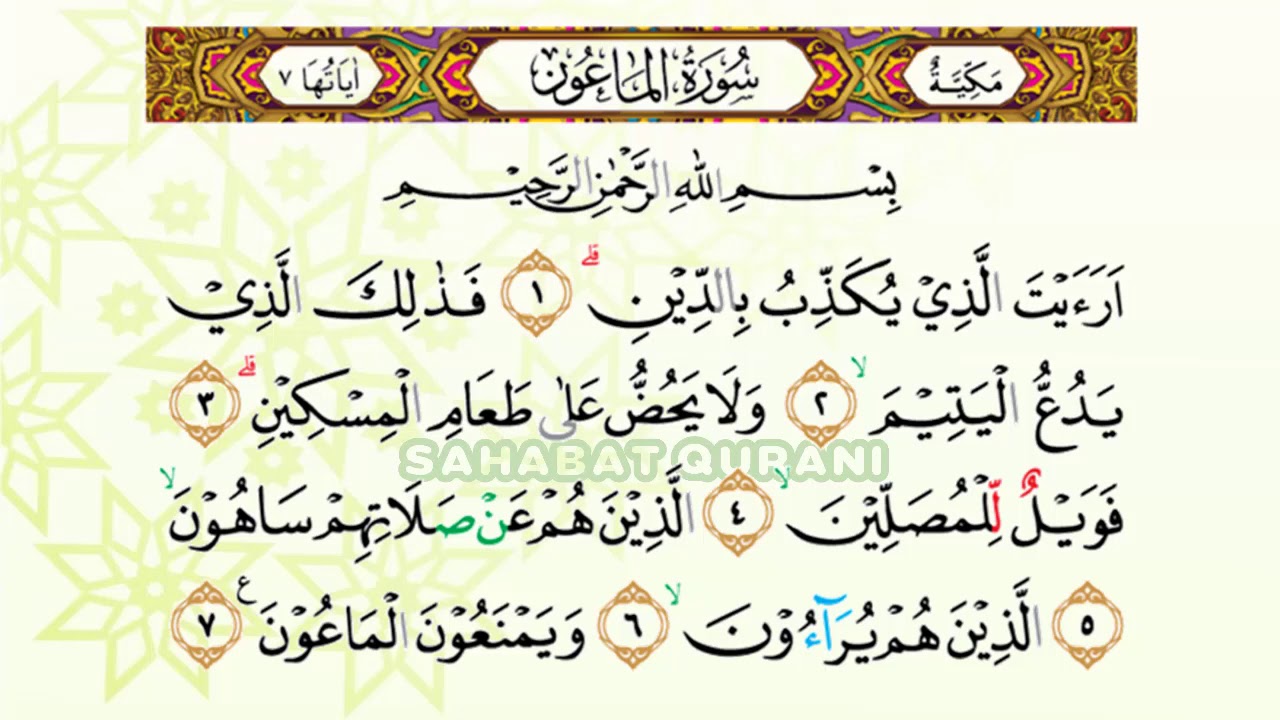 مَكِّيَّةٌ سُوْرَةُ الْمَاعُوْنِ اٰيَاتُهَا ٧
بِسْمِ اللّٰهِ الرَّحْمٰنِ الرَّحِيْمِ
اَرَءَيْتَ الَّذِيْ يُكَذِّبُ بِالدِّيْنِۗ ١ فَذٰلِكَ الَّذِيْ
يَدُعُّ الْيَتِيْمَۙ ٢ وَلَا يَحُضُّ عَلٰى طَعَامِ الْمِسْكِيْنِۗ ٣
SAHABAT QURANI
فَوَيْلٌ لِّلْمُصَلِّيْنَۙ ٤ الَّذِيْنَ هُمْ عَنْ صَلَاتِهِمْ سَاهُوْنَۙ
٥ الَّذِيْنَ هُمْ يُرَآءُوْنَۙ ٦ وَيَمْنَعُوْنَ الْمَاعُوْنَ ࣖ ٧